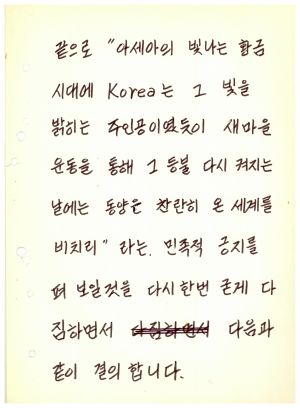 끝으로 "아세아의 빛나는 황금
시대에 Korea는 그 빛을
밝히는 주인공이였듯이 새마을
운동을 통해 그 등불 다시 켜지는
날에는 동양은 찬란히 온 세계를
비치리" 라는. 민족적 긍지를
펴 보일것을 다시한번 굳게 다
짐하면서 다짐하면서 다음과
같이 결의 합니다.